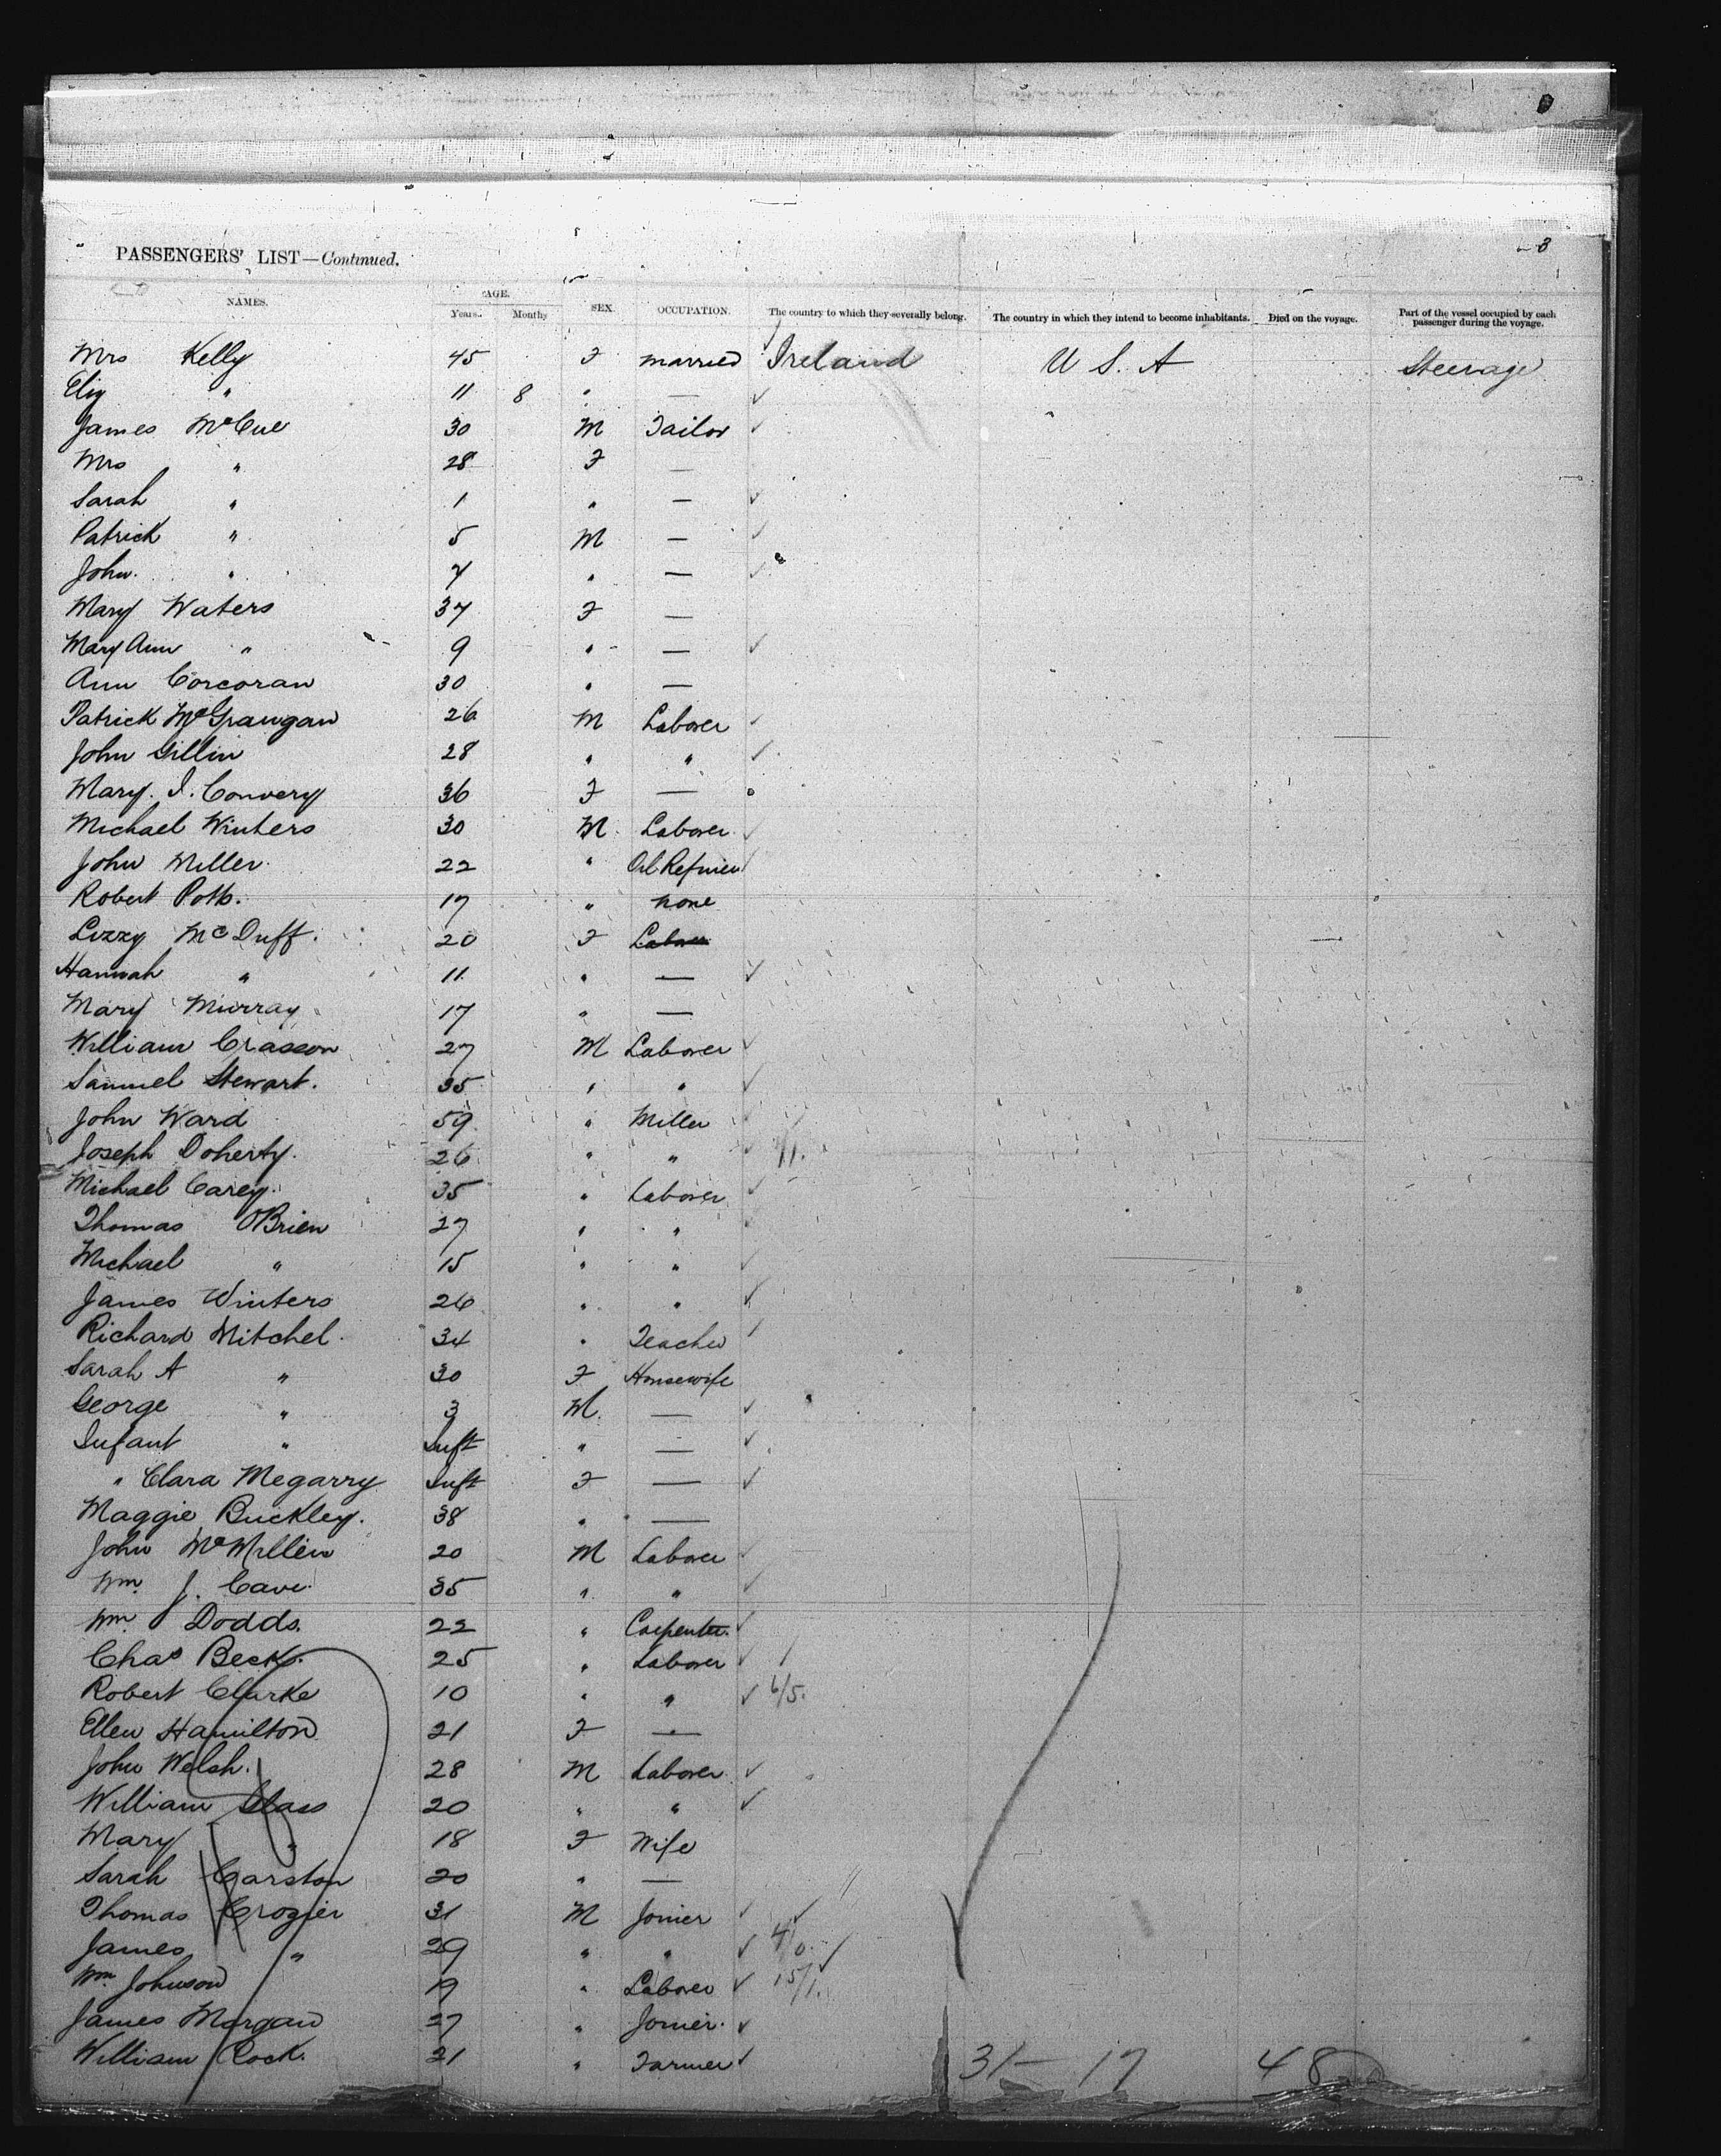 3
PASSENGERS' LIST—Continued.
NAMES. AGE. Years. Months SEX. OCCUPATION. The country to which they severally belong. The country in which they intend to become inhabitants. Died on the voyage. Part of the vessel occupied by each passenger during the voyage.
Mrs Kelly 45 F married Ireland U S. A Steerage
Eliz " 11 8 " —
James McCue 30 M Tailor
Mrs " 28 F —
Sarah " 1 " —
Patrick " 5 M —
John " " —
Mary Waters 37 F —
Mary Ann " 9 " —
Ann Corcoran 30 " —
Patrick McGraugan 26 M Laborer
John Gillin 28 " "
Mary. I. Convery 36 F —
Michael Winters 30 M Laborer
John Miller 22 " Oil Refiner
Robert Potts. 17 " none
Lizzy McDuff. 20 F Laborer
Hannah " 11 " —
Mary Murray 17 " —
William Crasson 27 M Laborer
Samuel Stewart. 35 " "
John Ward 59 " Miller
Joseph Doherty. 26 " "
Michael Carey. 35 " Laborer
Thomas OBrien 27 " "
Michael " 15 " "
James Winters 26 " "
Richard Mitchel. 34 " Teacher
Sarah A " 30 F Housewife
George " 3 M. —
Infant " Inft " —
" Clara Megarry Inft F —
Maggie Buckley. 38 " —
John McMillen 20 M Laborer
Wm. J. Cave 35 " "
Wm. Dodds. 22 " Carpenter.
Chas Beck. 25 " Laborer
Robert Clarke 10 " " 6/5.
Ellen Hamilton 21 F —
John Welsh. 28 M Laborer
William Glass 20 " "
Mary " 18 F Wife
Sarah Carston 20 " —
Thomas Crozier 31 M Joiner
James " 29 " " 4/0.
Wm Johnson 19 " Laborer 15/1.
James Morgan 27 " Joiner.
William Rock. 21 " Farmer
31— 17 48